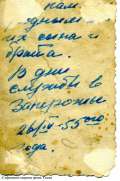 нам
родным
их сына и
брата.
В дни
службы в
Запорожье
26/IV-55 ого
года.